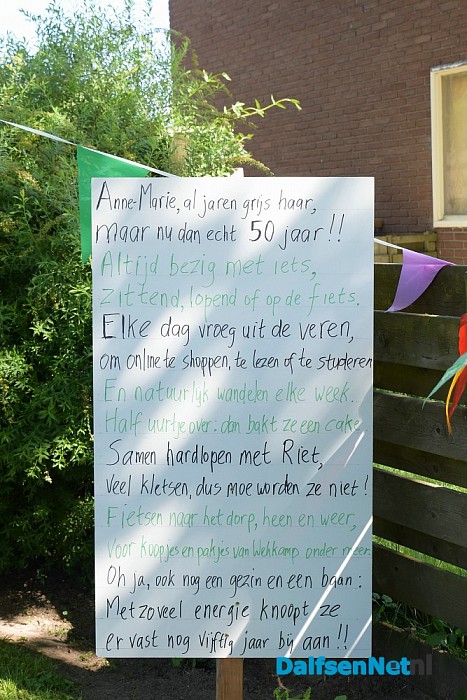 Anne-Marie, al jaren grijs haar,
maar nu dan echt 50 jaar!!
Altijd bezig met iets,
zittend, lopend of op de fiets.
Elke dag vroeg uit de veren,
om online te shoppen, te lezen of te studeren
En natuurlijk wandelen elke week.
Half uurtje over: dan bakt ze een cake
Samen hardlopen met Riet,
veel kletsen, dus moe worden ze niet!
Fietsen naar het dorp, heen en weer,
voor koopjes en pakjes van Wehkamp onder meer.
Oh ja, ook nog een gezin en een baan:
Met zoveel energie knoopt ze
er vast nog vijftig jaar bij aan!!
DalfsenNet.nl